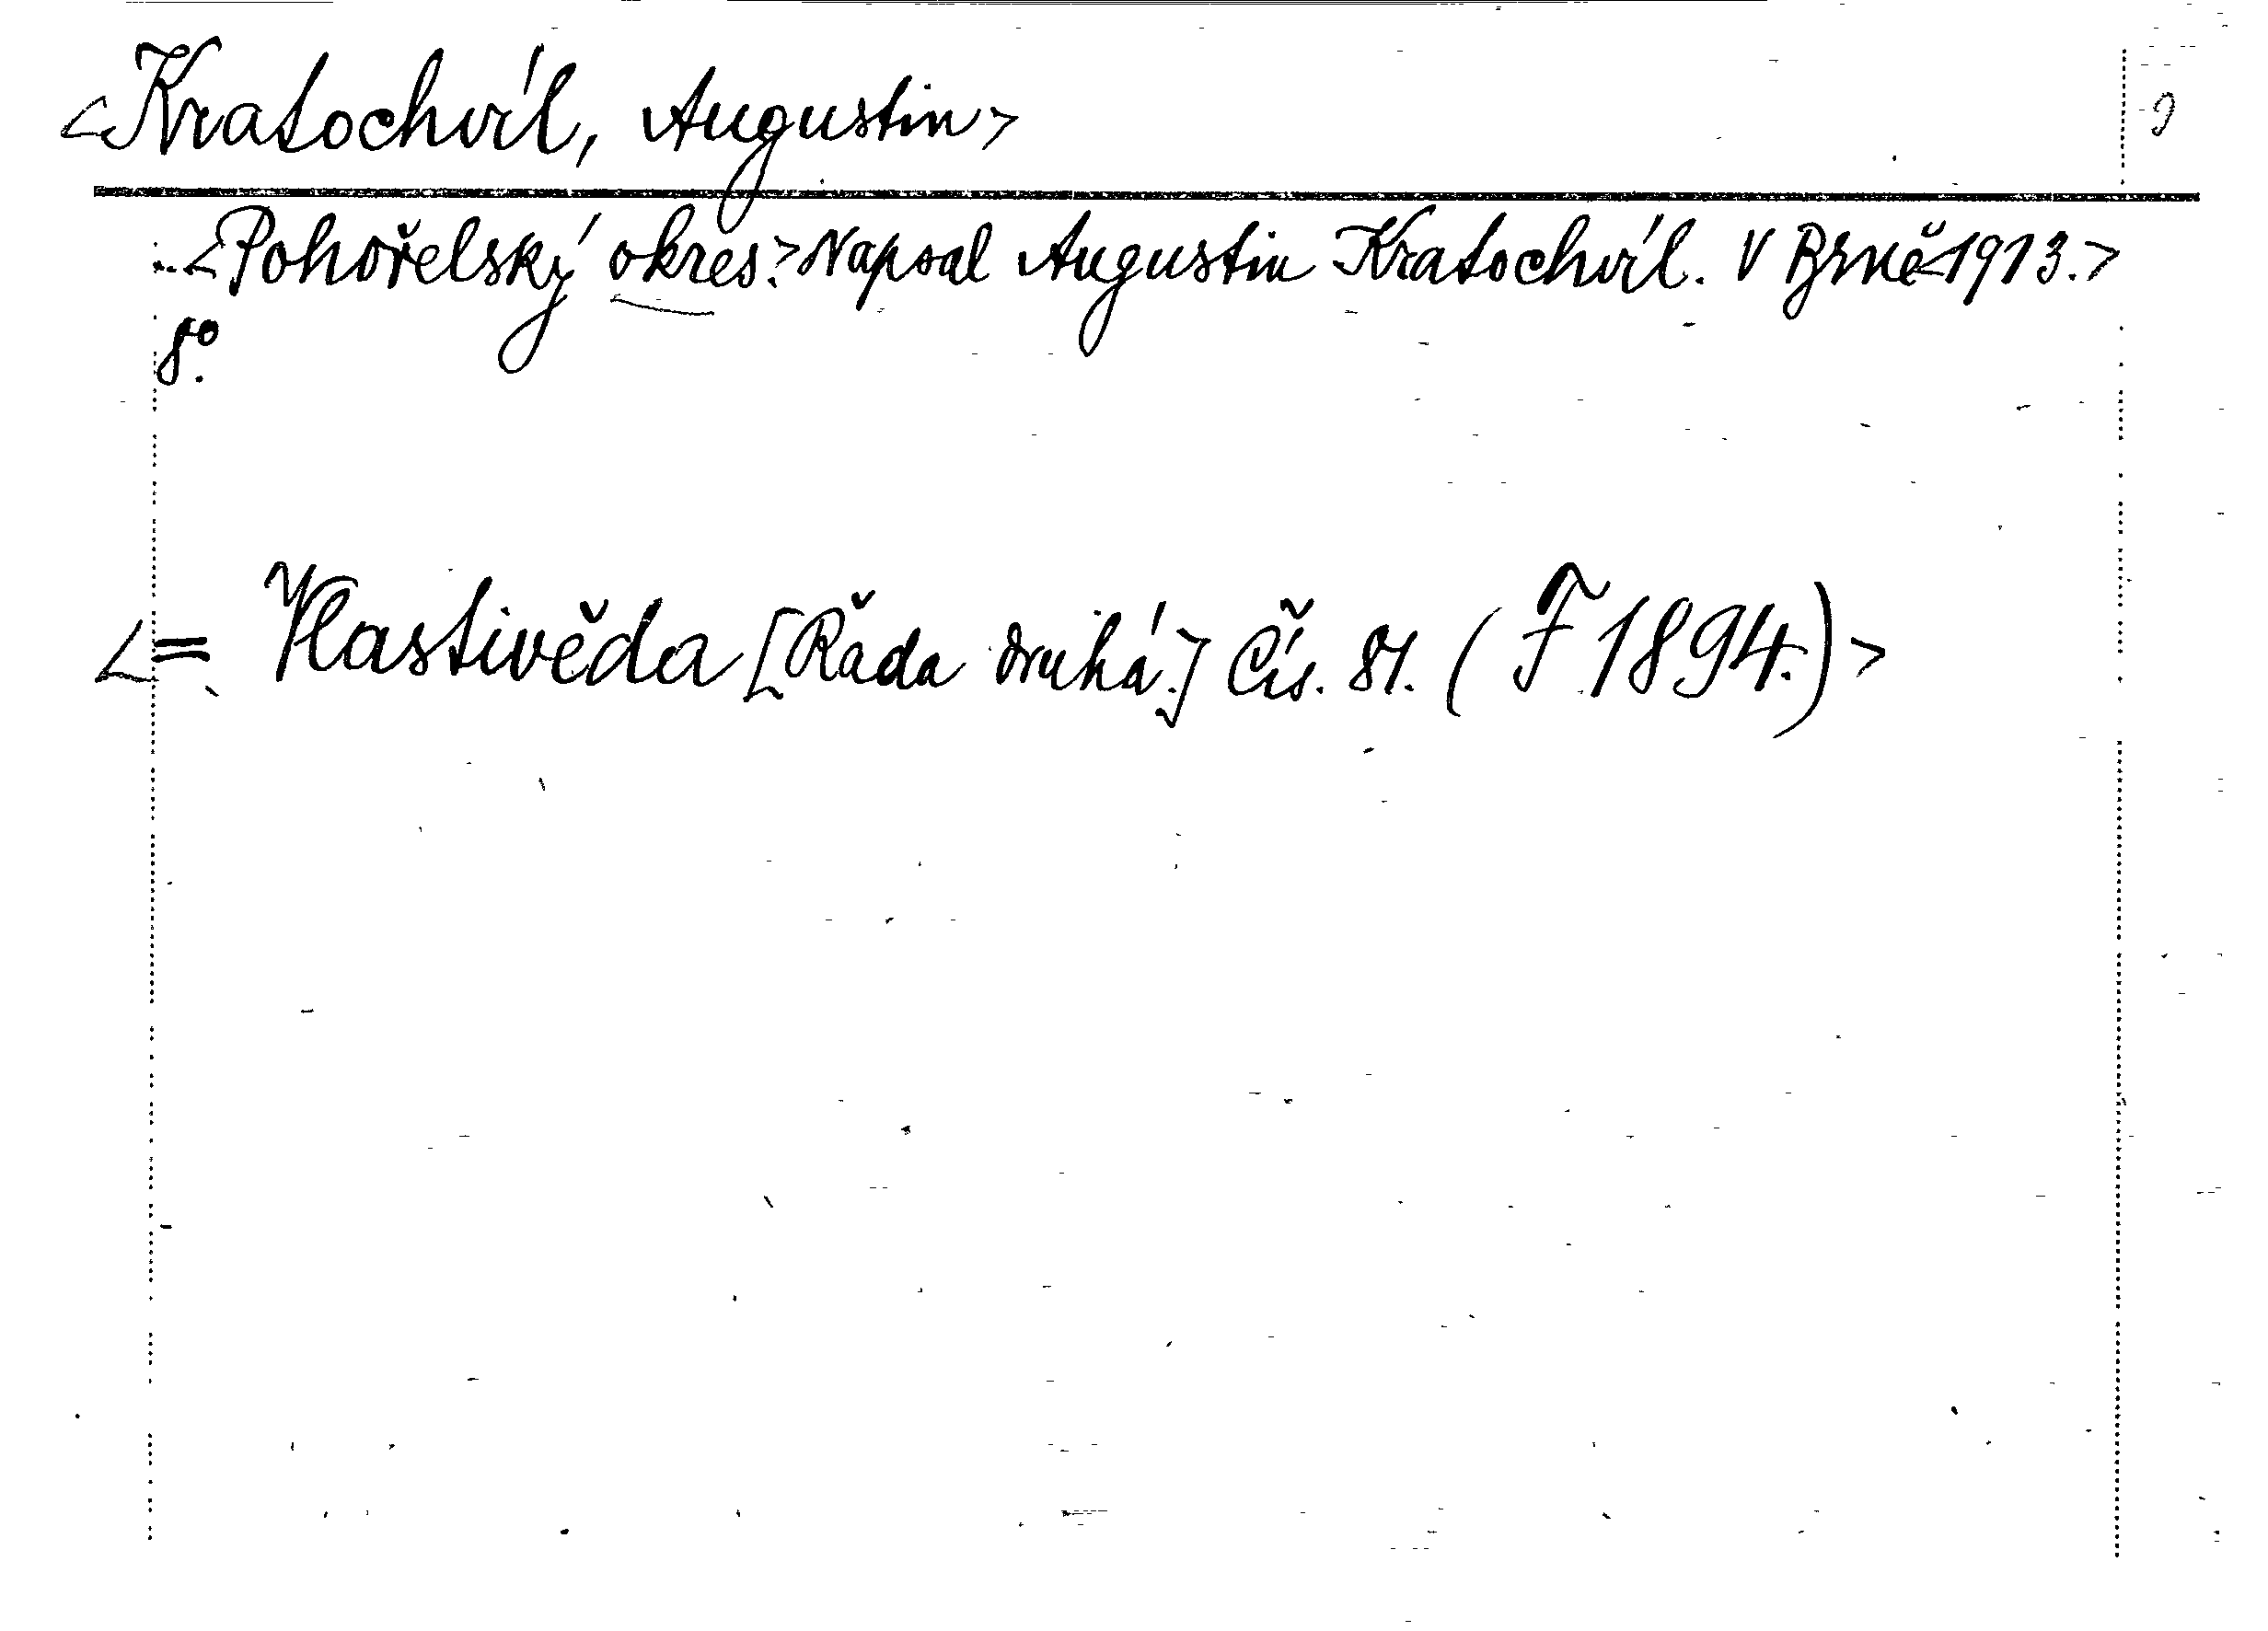 <Kratochvíl, Augustin>
<Pohořelský okres.> Napsal Augustin Kratochvíl. V Brně <1913.>
8º.
<= Vlastivěda [Řada druhá.] Čís. 81. (F 1894.)>